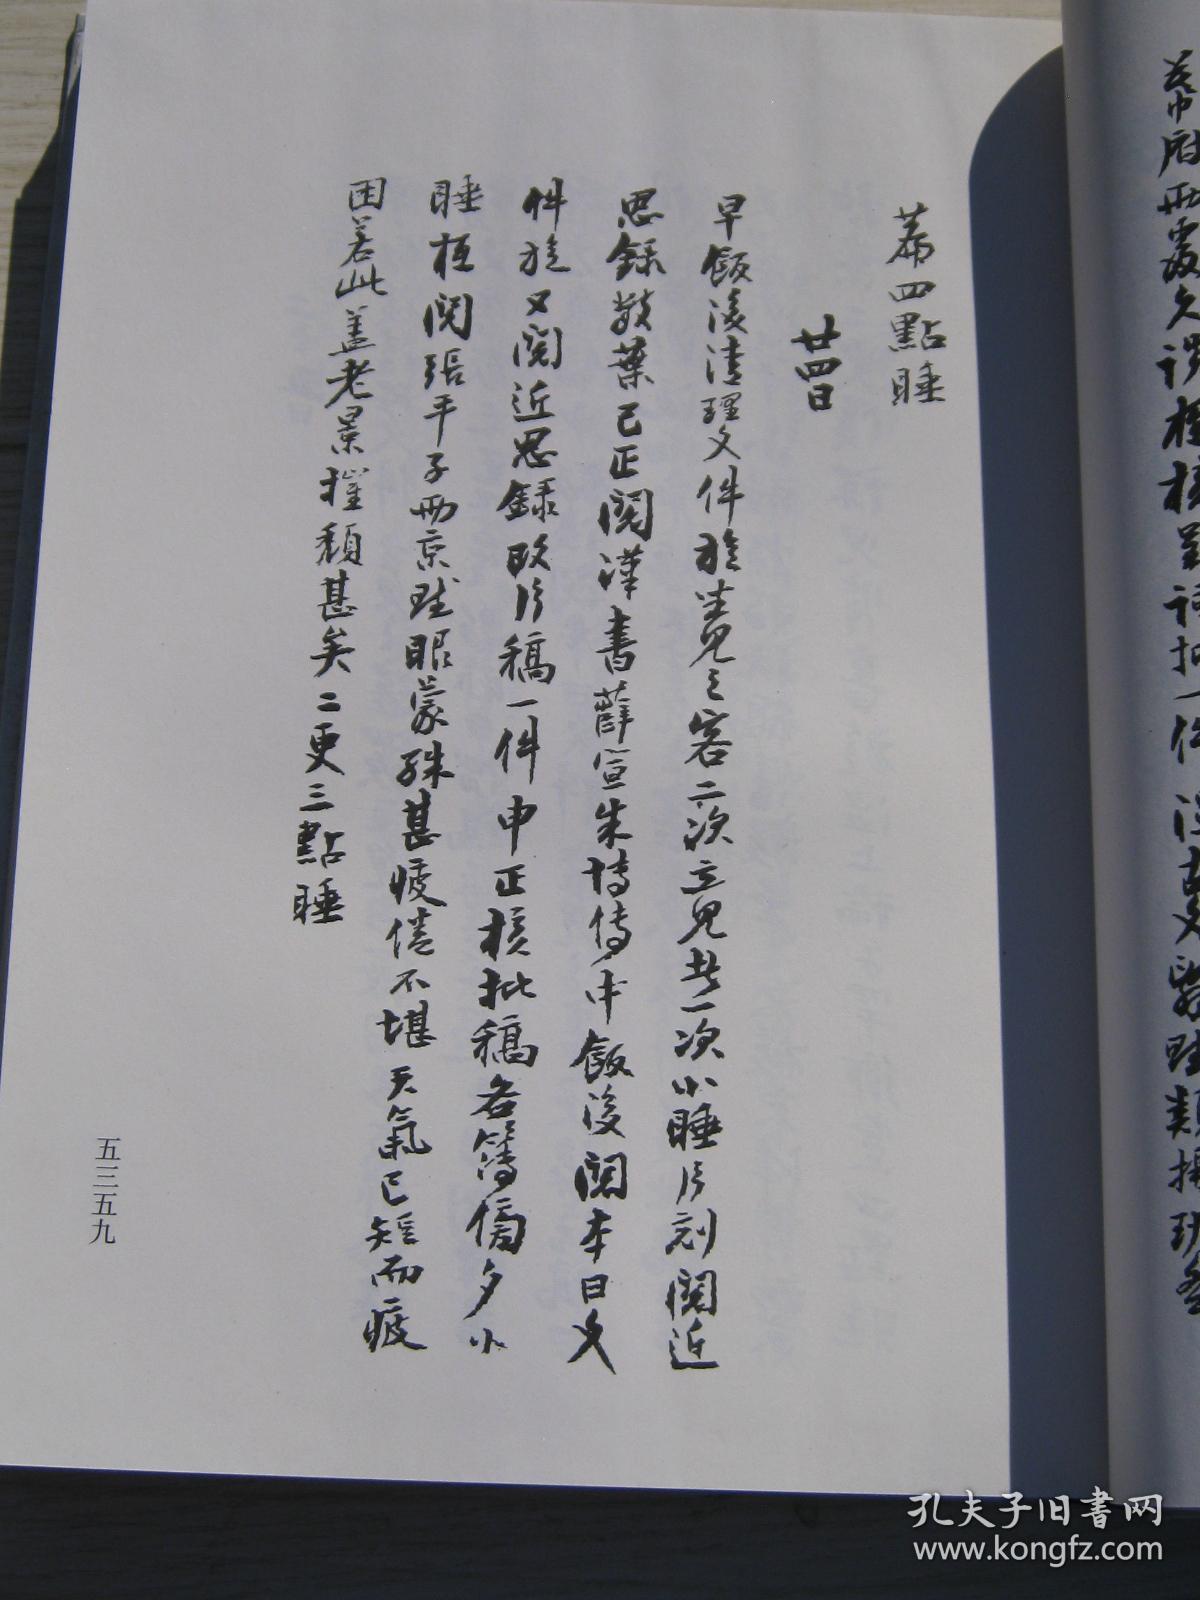 幕府兩處久談
一件溫古文辭賦類揚班各
篇四點睡
廿四日
早飯後清理文件旋坐見之客二次立見者一次小睡片刻閱近
思錄數葉已正閱漢書薛宣朱博傳中飯後閱本日文
件旋又閱近思錄改片稿一件申正核批稿各簿傍夕小
睡夜閱張平子兩京賦眼蒙殊甚疲倦不堪天氣已短而疲
困若此蓋老景摧頹甚矣二更三點睡
五三五九
孔夫子旧書网
www.kongfz.com